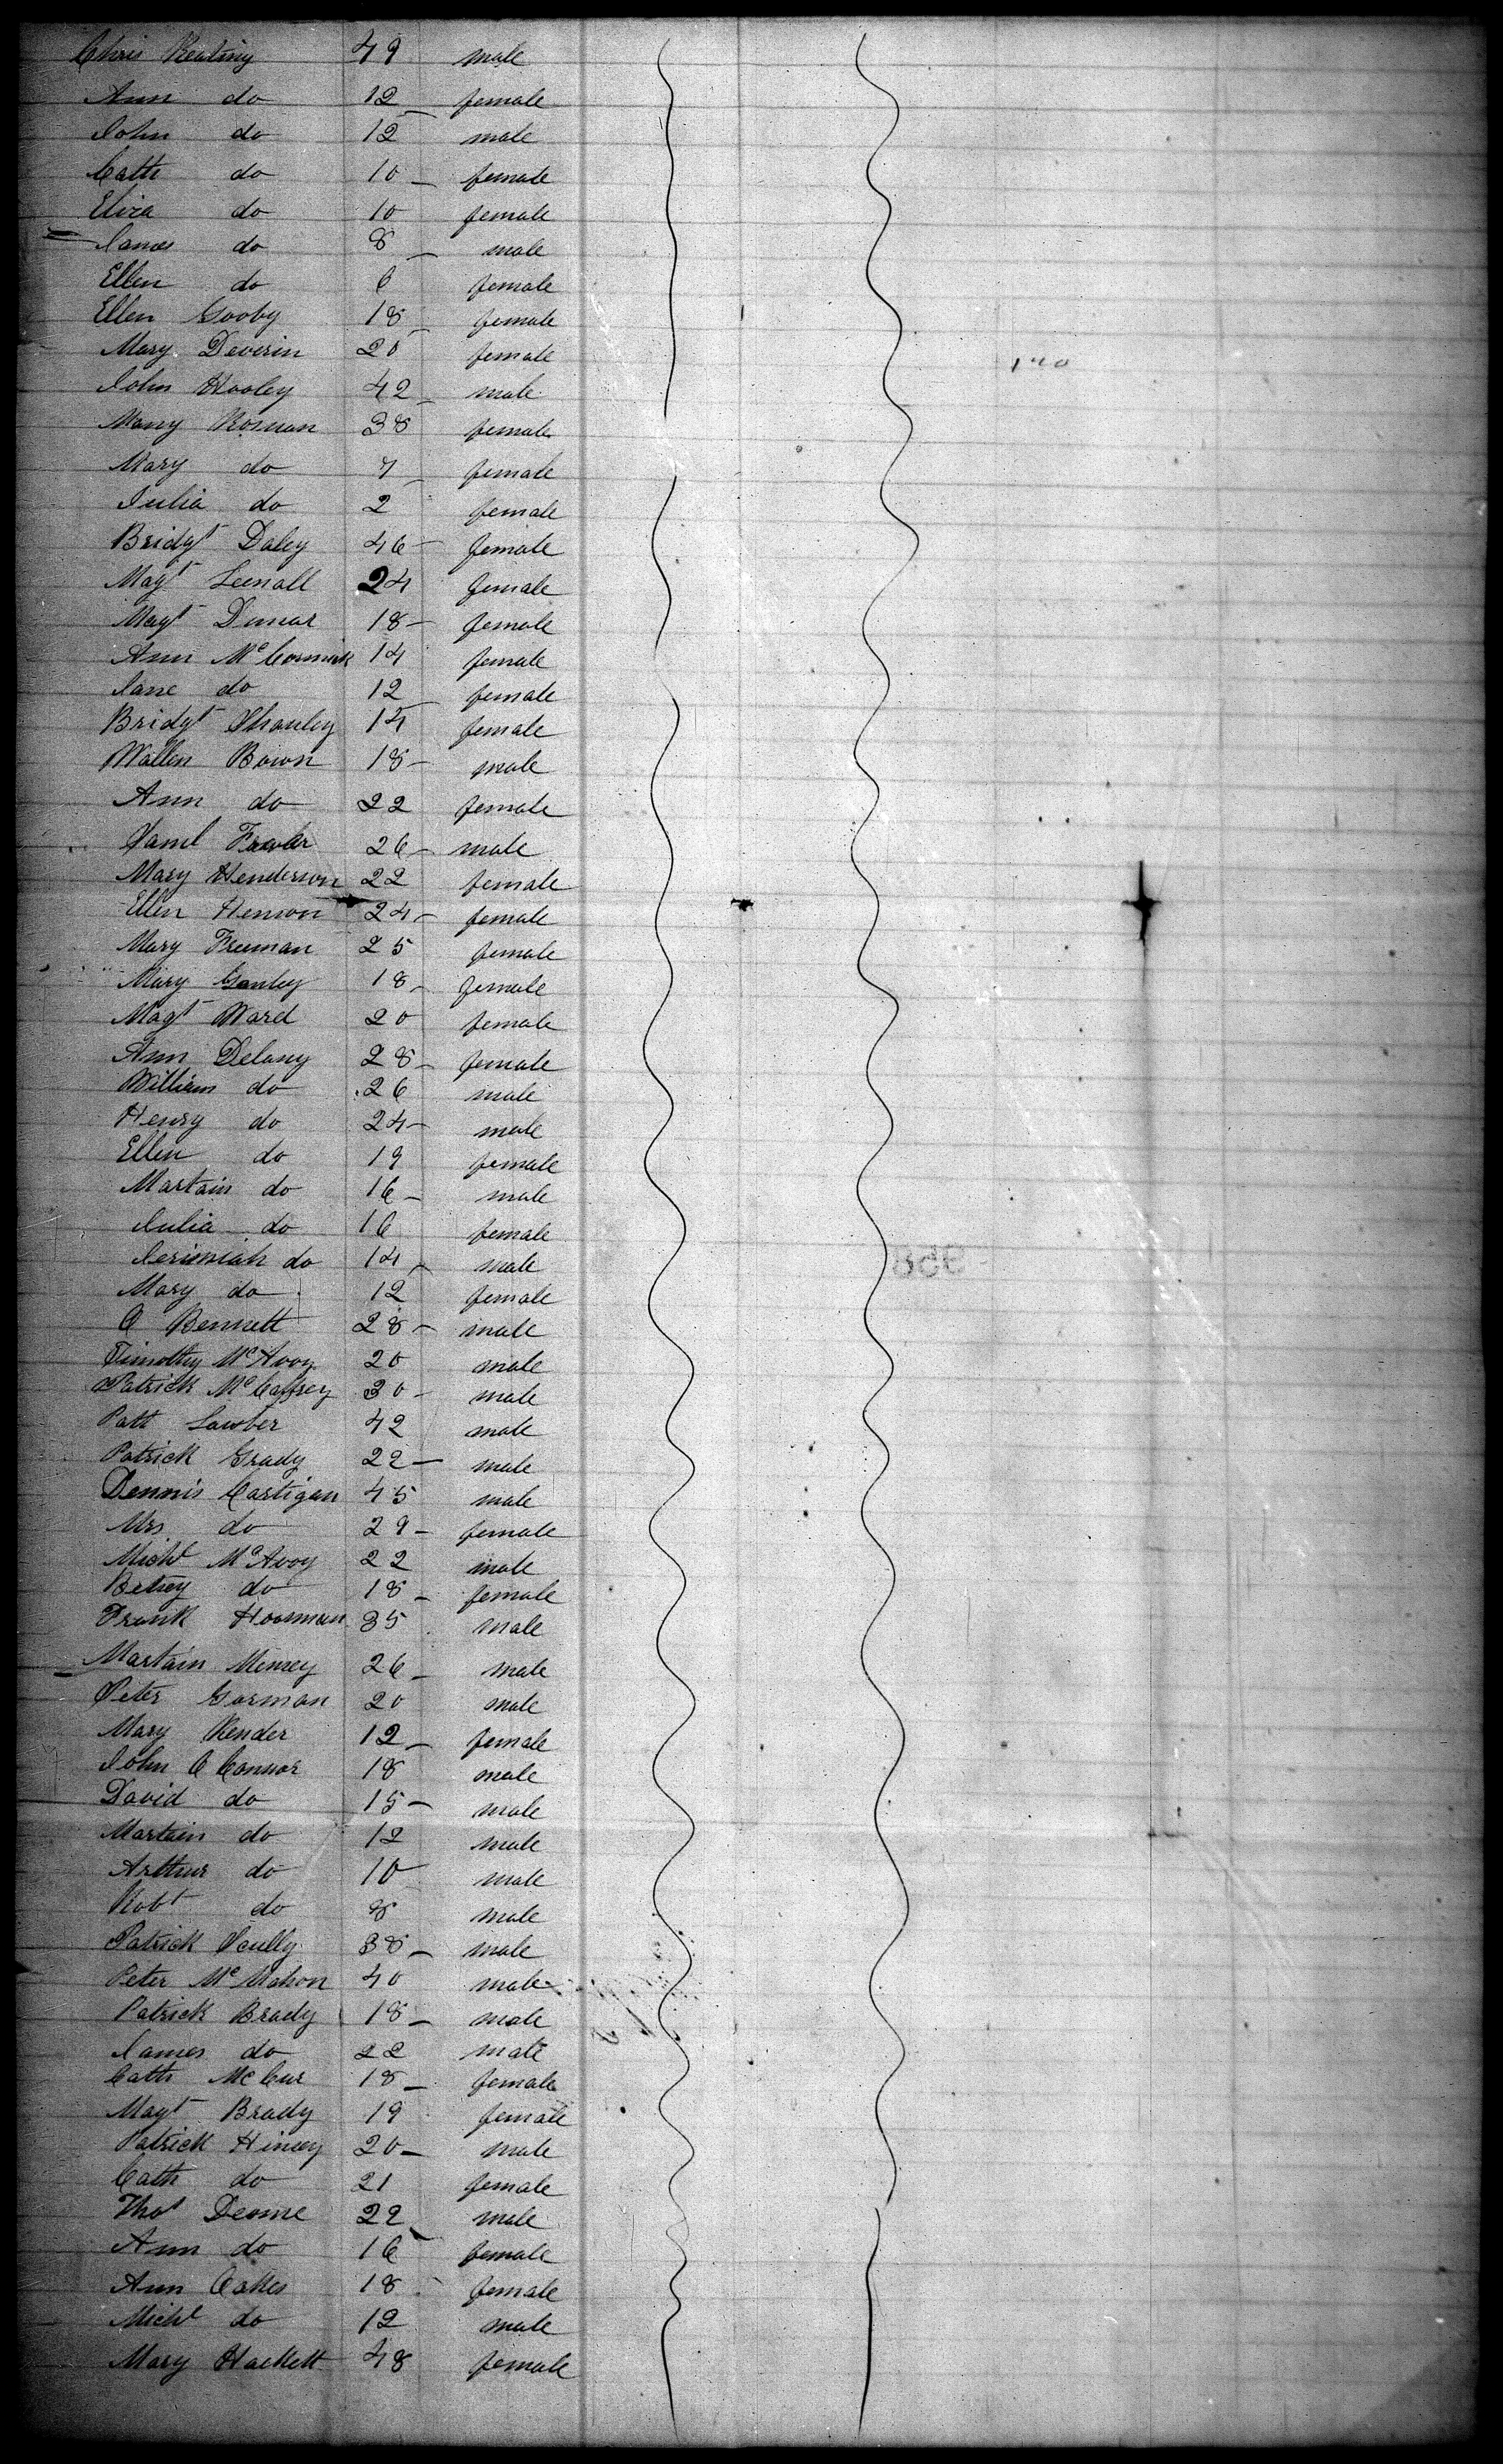 Chris Keating 49 male
Ann do 12 female
John do 12 male
Cath do 10 female
Eliza do 10 female
James do 8 male
Ellen do 6 female
Ellen Gooby 18 female
Mary Deverin 20 female
John Hooley 42 male
Mary Rosman 38 female
Mary do 7 female
Julia do 2 female
Bridgt Daley 46 female
Magt Leenall 24 female
Magt 18 female
Ann McCormick 14 female
Jane do 12 female
Bridgt Shanley 14 female
Wallen Bown 18 male
Ann do 22 female
Saml 26 male
Mary Henderson 22 female
Ellen Henson 24 female
Mary Freeman 25 female
Mary Ganley 18 female
Magt Ward 20 female
Ann Delany 28 female
William do 26 male
Henry do 24 male
Ellen do 19 female
Martain do 16 male
Julia do 16 female
Jerimiah do 14 male
Mary do 12 female
O Bennett 28 male
Timothy McAvoy 20 male
Patrick McCaffrey 30 male
Patt Lawber 42 male
Patrick Grady 22 male
Dennis Cartigan 45 male
Mrs do 29 female
Michl McAvoy 22 male
Betsey do 18 female
Frank Hoorman 35 male
Martain 26 male
Peter Gorman 20 male
Mary Render 12 female
John O Connor 18 male
David do 15 male
Martain do 12 male
Arthur do 10 male
Robt do 8 male
Patrick Scully 38 male
Peter McMahon 40 male
Patrick Brady 18 male
James do 22 male
Cath McCur 18 female
Magt Brady 19 female
Patrick Hinsey 20 male
Cath do 21 female
Thos Deome 22 male
Ann do 16 female
Ann Oakes 18 female
Michl do 12 male
Mary Hackett 48 female